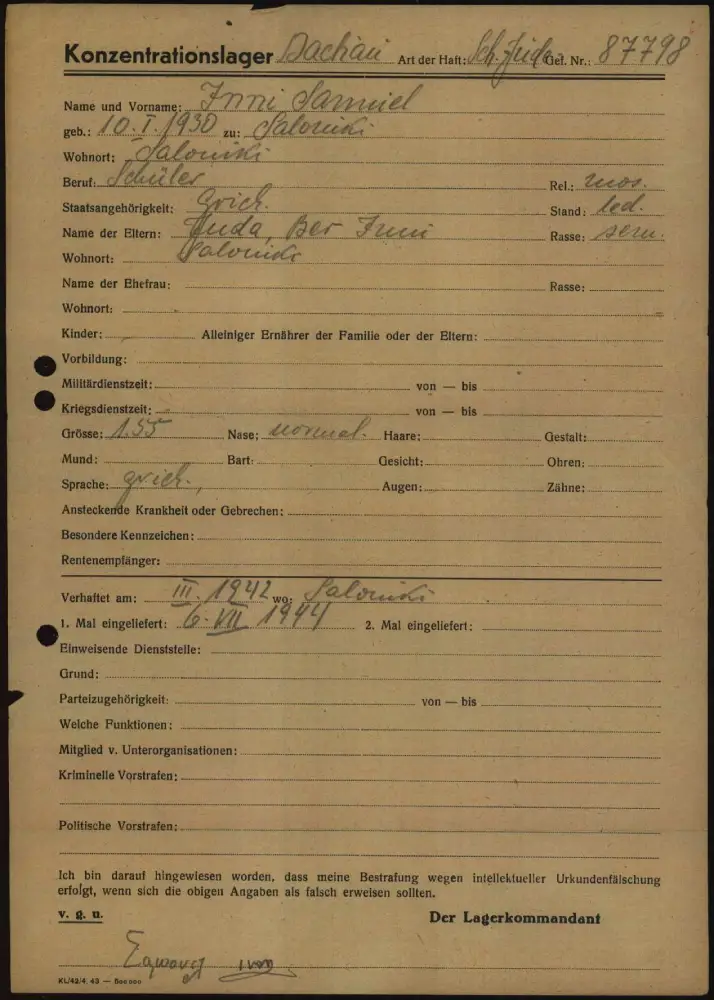 Konzentrationslager Dachau Art der Haft: Sch. Jude Gef. Nr.: 87798
Name und Vorname: Samuel
geb.: 10. I. 1930 zu: Saloniki
Wohnort: Saloniki
Beruf: Schüler Rel.: mos.
Staatsangehörigkeit: Grich. Stand: led.
Name der Eltern: Juda, Rasse: sem.
Wohnort: Saloniki
Name der Ehefrau: Rasse:
Wohnort:
Kinder: Alleiniger Ernährer der Familie oder der Eltern:
Vorbildung:
Militärdienstzeit: von — bis
Kriegsdienstzeit: von — bis
Grösse: 1.55 Nase: normal. Haare: Gestalt:
Mund: Bart: Gesicht: Ohren:
Sprache: grich., Augen: Zähne:
Ansteckende Krankheit oder Gebrechen:
Besondere Kennzeichen:
Rentenempfänger:
Verhaftet am: III. 1942 wo: Saloniki
1. Mal eingeliefert: 6. VII 1944 2. Mal eingeliefert:
Einweisende Dienststelle:
Grund:
Parteizugehörigkeit: von — bis
Welche Funktionen:
Mitglied v. Unterorganisationen:
Kriminelle Vorstrafen:
Politische Vorstrafen:
Ich bin darauf hingewiesen worden, dass meine Bestrafung wegen intellektueller Urkundenfälschung
erfolgt, wenn sich die obigen Angaben als falsch erweisen sollten.
v. g. u. Der Lagerkommandant
KL/42/4. 43 — 500 000